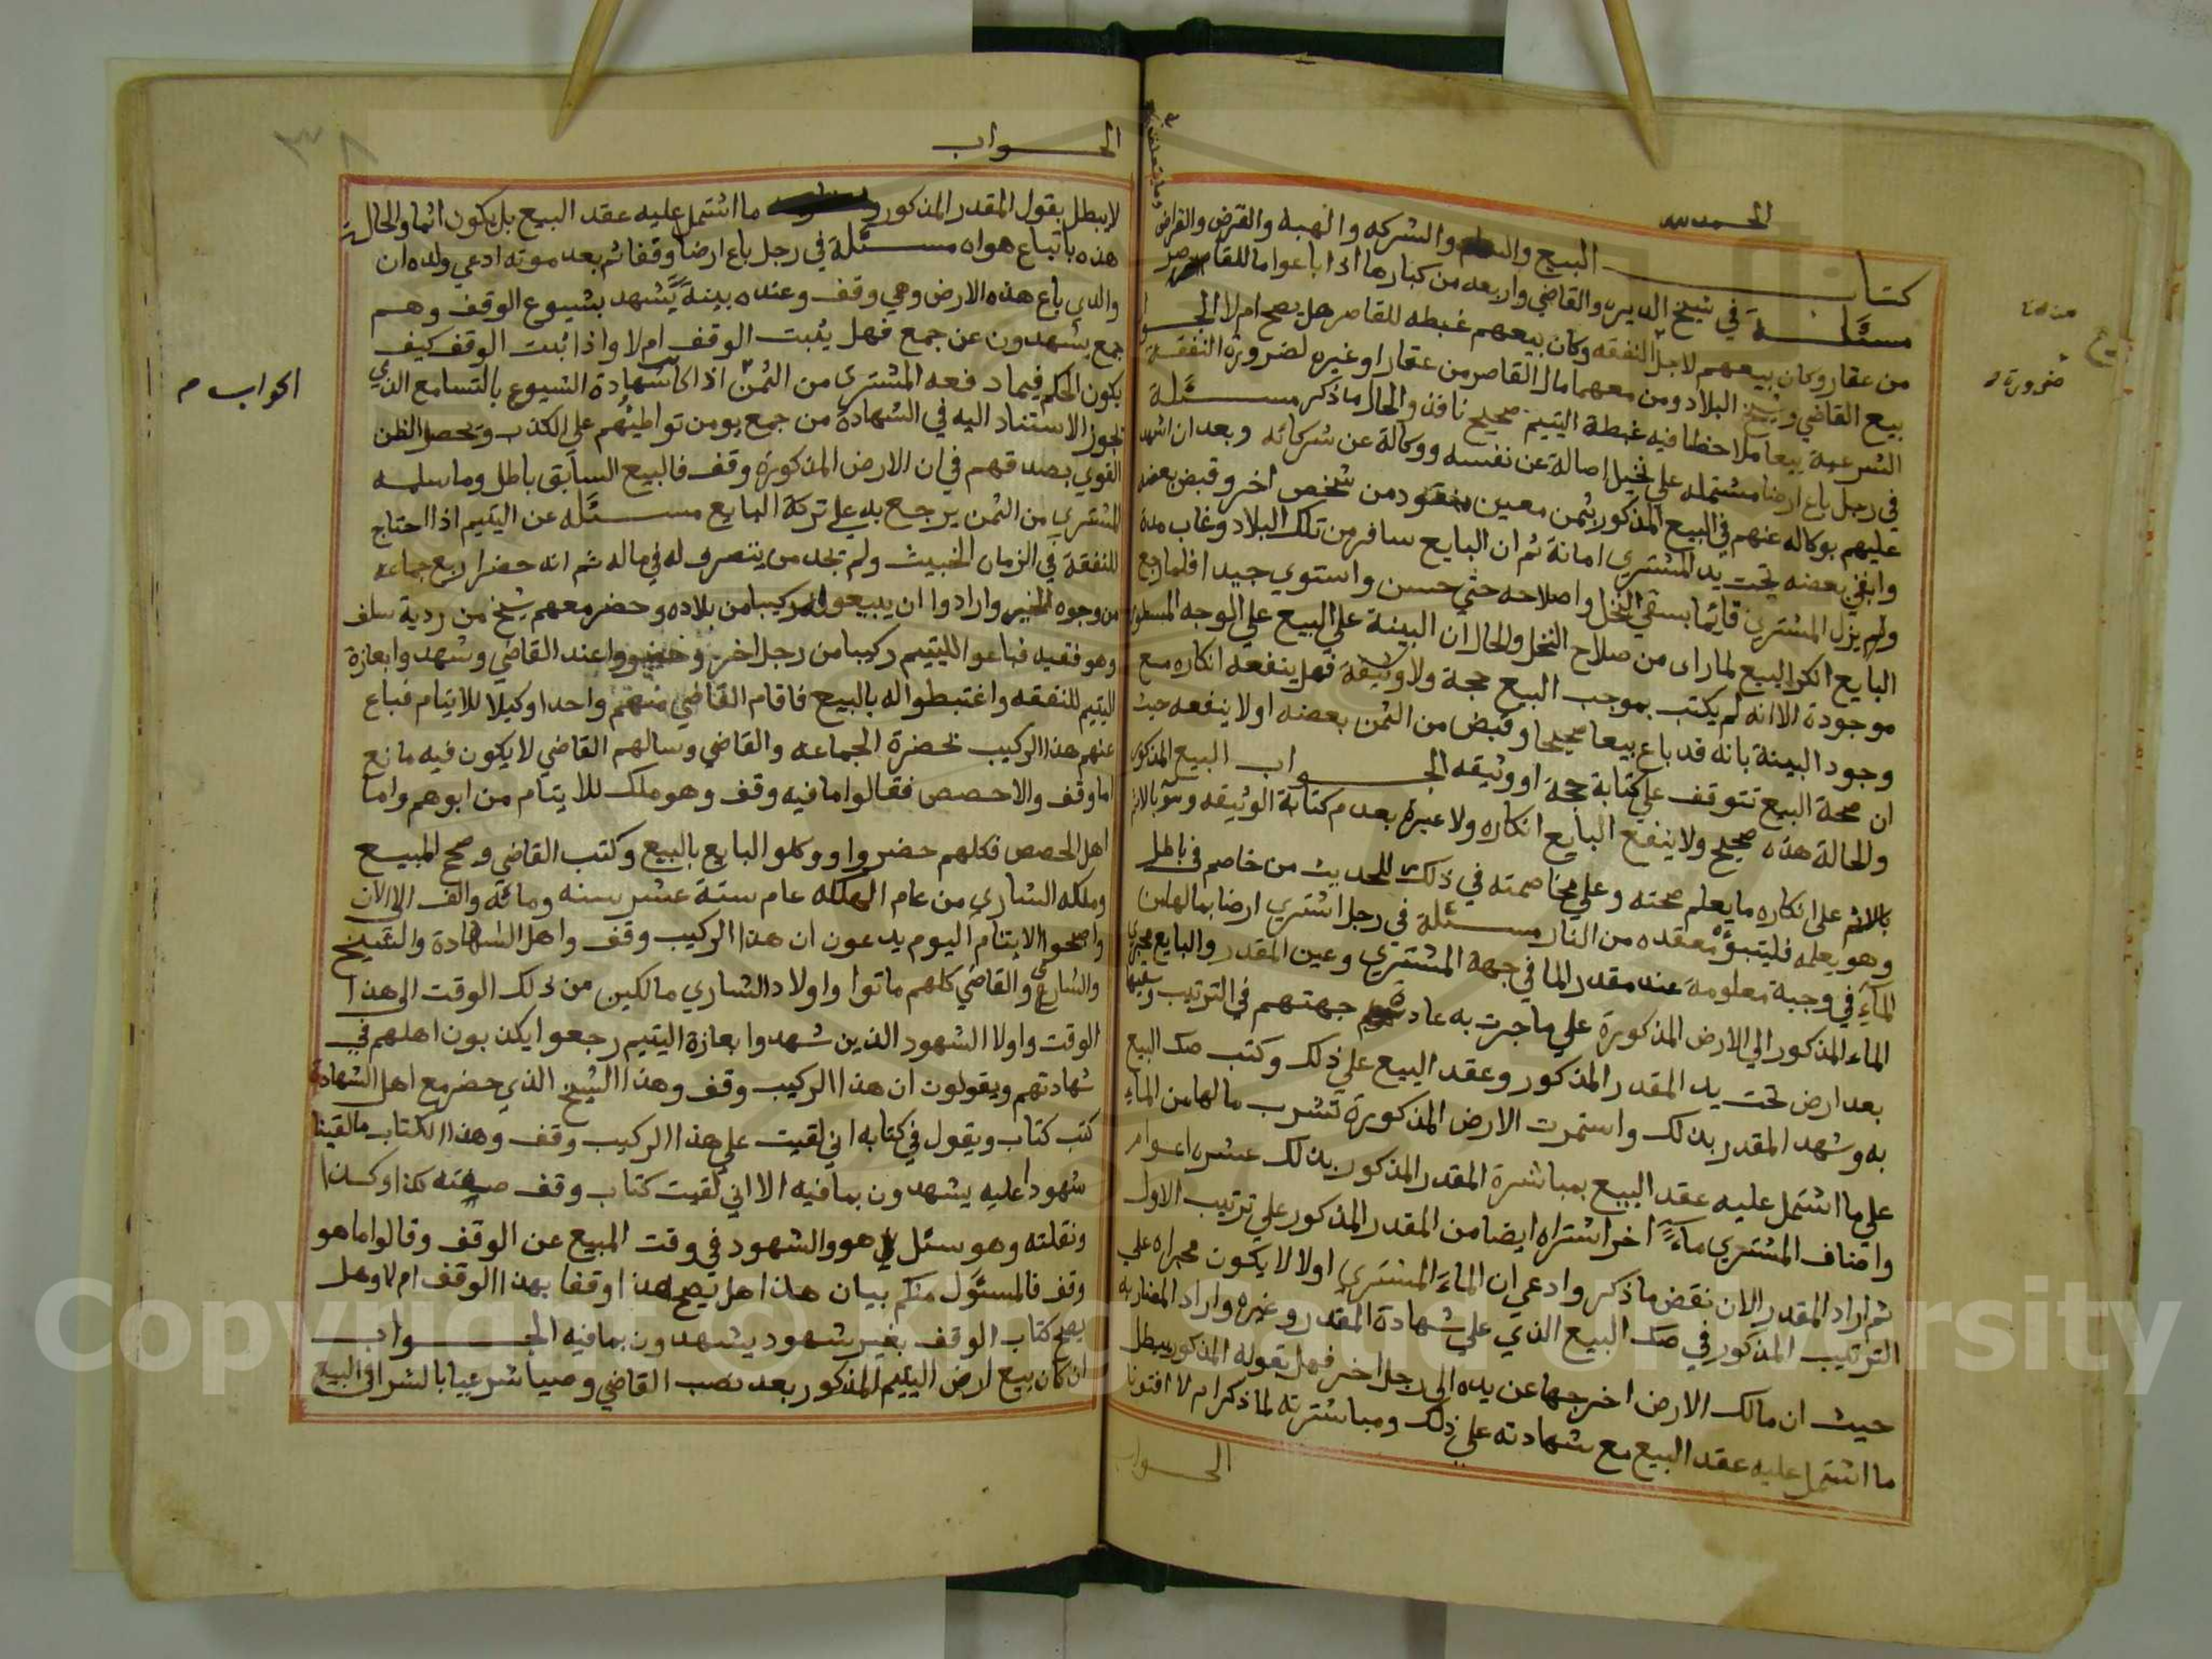 الحمد لله
كتاب البيع والسلم والشركه والهبه والقرض والقراض
وما يتعلق
مسئلة في شيخ الديره والقاضي واربعه من كبارها اذا باعوا ما للقاصر
من عقار وكان بيعهم لاجل النفقه وكان بيعهم غبطه للقاصر هل يصح ام لا الجواب
بيع القاضي وشيخ البلاد ومن معهما مال القاصر من عقار او غيره لضرورة النفقة
ضرورة
الشرعية بيعا ملاحظا فيه غبطة اليتيم صحيح نافذ والحال ما ذكر مسئلة
في رجل باع ارضا مشتمله على نخيل اصالة عن نفسه ووكالة عن شركائه وبعد ان اشهد
عليهم بوكاله عنهم في البيع المذكور بثمن معين منقود من شخص اخر وقبض بعضه
وابقي بعضه تحت يد المشتري امانة ثم ان البايع سافر من تلك البلاد وغاب مدة
ولم يزل المشتري قائما بسقي النخل واصلاحه حتي حسن واستوي جيدا فلما رجع
البايع انكر البيع لما راى من صلاح النخل والحال ان البينة على البيع علي الوجه المسطور
موجودة الا انه لم يكتب بموجب البيع حجة ولا وثيقة فهل ينفعه انكاره مع
وجود البينة بانه قد باع بيعا صحيحا وقبض من الثمن بعضه او لا ينفعه حيث
ان صحة البيع تتوقف علي كتابة حجة او وثيقه الجواب البيع المذكور
والحالة هذه صحيح ولا ينفع البايع انكاره ولا عبرة بعدم كتابة الوثيقه
بالاثم على انكاره ما يعلم صحته وعلي مخاصمته في ذلك للحديث من خاصم في باطل
وهو يعلمه فليتبوّء مقعده من النار مسئلة في رجل اشتري ارضا بمالها من
المآءِ في وجبة معلومة عند مقدر الما في جهة المشتري وعين المقدر والبايع مجري
الماء المذكور الي الارض المذكورة علي ما جرت به عادة جهتهم في الترتيب
بعد ارض تحت يد المقدر المذكور وعقد البيع علي ذلك وكتب صك البيع
به وشهد المقدر بذلك واستمرت الارض المذكورة تشرب مالها من الماءِ
علي ما اشتمل عليه عقد البيع بمباشرة المقدر المذكور بذلك عشرة اعوام
واضاف المشتري مآءً اخر اشتراه ايضا من المقدر المذكور علي ترتيب الاول
ثم اراد المقدر الان نقض ما ذكر وادعي ان الماءَ المشتري اولا لا يكون مجراه علي
الترتيب المذكور في صك البيع الذي علي شهادة المقدر وغيره واراد المضاربه
حيث ان مالك الارض اخرجها عن يده الى رجل اخر فهل بقوله المذكور يبطل
ما اشتمل عليه عقد البيع مع شهادته علي ذلك ومباشرته لما ذكر ام لا افتونا
الجواب
الجواب
لا يبطل بقول المقدر المذكور ما اشتمل عليه عقد البيع بل يكون اثما والحالة
هذه باتباع هواه مسئلة في رجل باع ارضا وقفا ثم بعد موته ادعي ولده ان
والدي باع هذه الارض وهي وقف وعنده بينةً تشهد بشيوع الوقف وهم
جمع يشهدون عن جمع فهل يثبت الوقف ام لا واذا ثبت الوقف كيف
يكون الحكم فيما دفعه المشتري من الثمن اذا كان شهادة الشيوع بالتسامع الذي
الجواب م
يجوز الاستناد اليه في الشهادة من جمع يومن تواطيئهم علي الكذب وتحصل الظن
القوي بصدقهم في ان الارض المذكورة وقف فالبيع السابق باطل وما سلمه
المشتري من الثمن يرجع به علي تركة البايع مسئله عن اليتيم اذا احتاج
للنفقة في الزمان الخبيث ولم تجد من يتصرف له في ماله ثم انه حضر اربع جماعه
من وجوه الخير وارادوا ان يبيعوا له ركيبا من بلاده وحضر معهم شيخ من ردية سلف
وهو فقيه فباعوا لليتيم ركيبا من رجل اخر وحضروا عند القاضي وشهدوا بعازة
اليتيم للنفقه واغتبطوا له بالبيع فاقام القاضي منهم واحدا وكيلا للايتام فباع
عنهم هذا الركيب بحضرة الجماعه والقاضي وسالهم القاضي لا يكون فيه مانع
اما وقف والا حصص فقالوا ما فيه وقف وهو ملك للايتام من ابوهم واما
اهل الحصص فكلهم حضروا ووكلو البايع بالبيع وكتب القاضي وصح المبيع
وملكه الشاري من عام الهلكه عام ستة عشر سنه ومائة والف الى الان
واصبحوا الايتام اليوم يدعون ان هذا الركيب وقف واهل الشهادة والشيخ
والشاري والقاضي كلهم ماتوا واولاد الشاري مالكين من ذلك الوقت الى هذا
الوقت واولا الشهود الذين شهدوا بعازة اليتيم رجعوا يكذبون اهلهم في
شهادتهم ويقولون ان هذا الركيب وقف وهذا الشيخ الذي حضر مع اهل الشهادة
كتب كتاب ويقول في كتابه اني لقيت علي هذا الركيب وقف وهذا الكتاب ما لقينا
شهود عليه يشهدون بما فيه الا اني لقيت كتاب وقف صفته كذا وكذا
ونقلته وهو سئل هو والشهود في وقت المبيع عن الوقف وقالوا ما هو
وقف فالمسئول منكم بيان هذا هل يصح هذا وقفا بهذا الوقف ام لا وهل
يصح كتاب الوقف بغير شهود يشهدون بما فيه الجواب
ان كان بيع ارض اليتيم المذكور بعد نصب القاضي وصيا شرعيا بالشرا في البيع